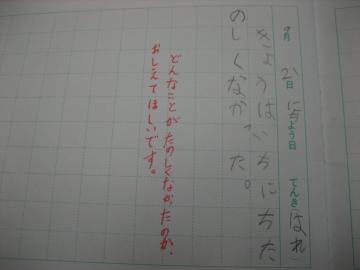 月 日 にちよう日 てんき(はれ)
きょうはいちにちた
のしくなかった。
どんなことがたのしくなかったのか、
おしえてほしいです。